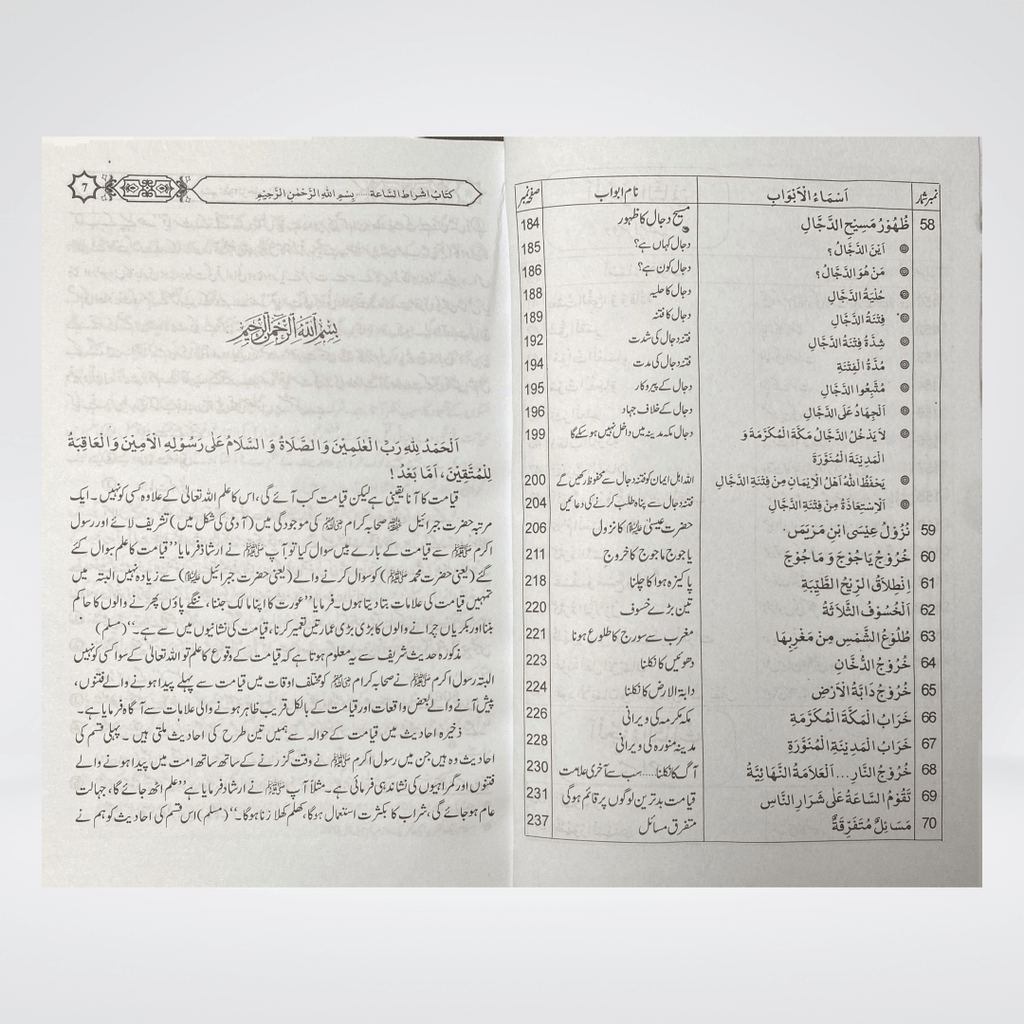 نمبر شمار اَسْمَاءُ الْاَبْوَابِ نام ابواب صفحہ نمبر
58 ظُهُوْرُ مَسِيْحِ الدَّجَّالِ مسیح دجال کا ظہور 184
اَيْنَ الدَّجَّالُ ؟ دجال کہاں ہے؟ 185
مَنْ هُوَ الدَّجَّالُ ؟ دجال کون ہے؟ 186
حُلْيَةُ الدَّجَّالِ دجال کا حلیہ 188
فِتْنَةُ الدَّجَّالِ دجال کا فتنہ 189
شِدَّةُ فِتْنَةِ الدَّجَّالِ فتنہ دجال کی شدت 192
مُدَّةُ الْفِتْنَةِ فتنہ دجال کی مدت 194
مُتَّبِعُوا الدَّجَّالِ دجال کے پیروکار 195
اَلْجِهَادُ عَلَى الدَّجَّالِ دجال کے خلاف جہاد 196
لاَ يَدْخُلُ الدَّجَّالُ مَكَّةَ الْمُكَرَّمَةَ وَ دجال مکہ مدینہ میں داخل نہیں ہو سکے گا 199
الْمَدِيْنَةَ الْمُنَوَّرَةَ
يَحْفَظُ اللّٰهُ اَهْلَ الْاِيْمَانِ مِنْ فِتْنَةِ الدَّجَّالِ اللہ اہل ایمان کو فتنہ دجال سے محفوظ رکھیں گے 200
اَلْاِسْتِعَاذَةُ مِنْ فِتْنَةِ الدَّجَّالِ فتنہ دجال سے پناہ طلب کرنے کی دعائیں 204
59 نُزُوْلُ عِيْسَى ابْنِ مَرْيَمَ حضرت عیسیٰ علیہ السلام کا نزول 206
60 خُرُوْجُ يَاجُوْجَ وَ مَاجُوْجَ یاجوج ماجوج کا خروج 211
61 اِنْطِلاَقُ الرِّيْحِ الطَّيِّبَةِ پاکیزہ ہوا کا چلنا 218
62 اَلْخُسُوْفُ الثَّلاَثَةُ تین بڑے خسوف 220
63 طُلُوْعُ الشَّمْسِ مِنْ مَغْرِبِهَا مغرب سے سورج کا طلوع ہونا 221
64 خُرُوْجُ الدُّخَانِ دھوئیں کا نکلنا 223
65 خُرُوْجُ دَابَّةُ الْاَرْضِ دابۃ الارض کا نکلنا 224
66 خَرَابُ الْمَكَّةَ الْمُكَرَّمَةِ مکہ مکرمہ کی ویرانی 226
67 خَرَابُ الْمَدِيْنَةِ الْمُنَوَّرَةِ مدینہ منورہ کی ویرانی 228
68 خُرُوْجُ النَّارِ ... اَلْعَلاَمَةُ النَّهَائِيَّةُ آگ کا نکلنا ..... سب سے آخری علامت 230
69 تَقُوْمُ السَّاعَةُ عَلٰى شَرَارِ النَّاسِ قیامت بدترین لوگوں پر قائم ہوگی 231
70 مَسَائِلٌ مُتَفَرِّقَةٌ متفرق مسائل 237
کتابُ اشراط السَّاعة ..... بِسْمِ اللهِ الرَّحْمٰنِ الرَّحِيْمِ 7
بِسْمِ اللهِ الرَّحْمٰنِ الرَّحِيْمِ
اَلْحَمْدُ لِلّٰهِ رَبِّ الْعٰلَمِيْنَ وَ الصَّلاَةُ وَ السَّلاَمُ عَلٰى رَسُوْلِهِ الْاَمِيْنَ وَ الْعَاقِبَةُ
لِلْمُتَّقِيْنَ، اَمَّا بَعْدُ !
قیامت کا آنا یقینی ہے لیکن قیامت کب آئے گی، اس کا علم اللہ تعالیٰ کے علاوہ کسی کو نہیں۔ ایک
مرتبہ حضرت جبرائیل علیہ السلام صحابہ کرام رضی اللہ عنہم کی موجودگی میں (آدمی کی شکل میں) تشریف لائے اور رسول
اکرم ﷺ سے قیامت کے بارے میں سوال کیا تو آپ ﷺ نے ارشاد فرمایا ’’قیامت کا علم سوال کئے
گئے (یعنی حضرت محمد ﷺ) کو سوال کرنے والے (یعنی حضرت جبرائیل علیہ السلام) سے زیادہ نہیں البتہ میں
تمہیں قیامت کی علامات بتا دیتا ہوں۔ فرمایا ’’عورت کا اپنا مالک جننا، ننگے پاؤں پھرنے والوں کا حاکم
بننا اور بکریاں چرانے والوں کا بڑی بڑی عمارتیں تعمیر کرنا، قیامت کی نشانیوں میں سے ہے۔‘‘ (مسلم)
مذکورہ حدیث شریف سے یہ معلوم ہوتا ہے کہ قیامت کے وقوع کا علم تو اللہ تعالیٰ کے سوا کسی کو نہیں
البتہ رسول اکرم ﷺ نے صحابہ کرام رضی اللہ عنہم کو مختلف اوقات میں قیامت سے پہلے پیدا ہونے والے فتنوں،
پیش آنے والے بعض واقعات اور قیامت کے بالکل قریب ظاہر ہونے والی علامات سے آگاہ فرمایا ہے۔
ذخیرہ احادیث میں قیامت کے حوالہ سے ہمیں تین طرح کی احادیث ملتی ہیں۔ پہلی قسم کی
احادیث وہ ہیں جن میں رسول اکرم ﷺ نے وقت گزرنے کے ساتھ ساتھ امت میں پیدا ہونے والے
فتنوں اور گمراہیوں کی نشاندہی فرمائی ہے۔ مثلاً آپ ﷺ نے ارشاد فرمایا ہے ’’علم اٹھ جائے گا، جہالت
عام ہو جائے گی، شراب کا بکثرت استعمال ہوگا، کھلم کھلا زنا ہوگا۔‘‘ (مسلم) اس قسم کی احادیث کو ہم نے